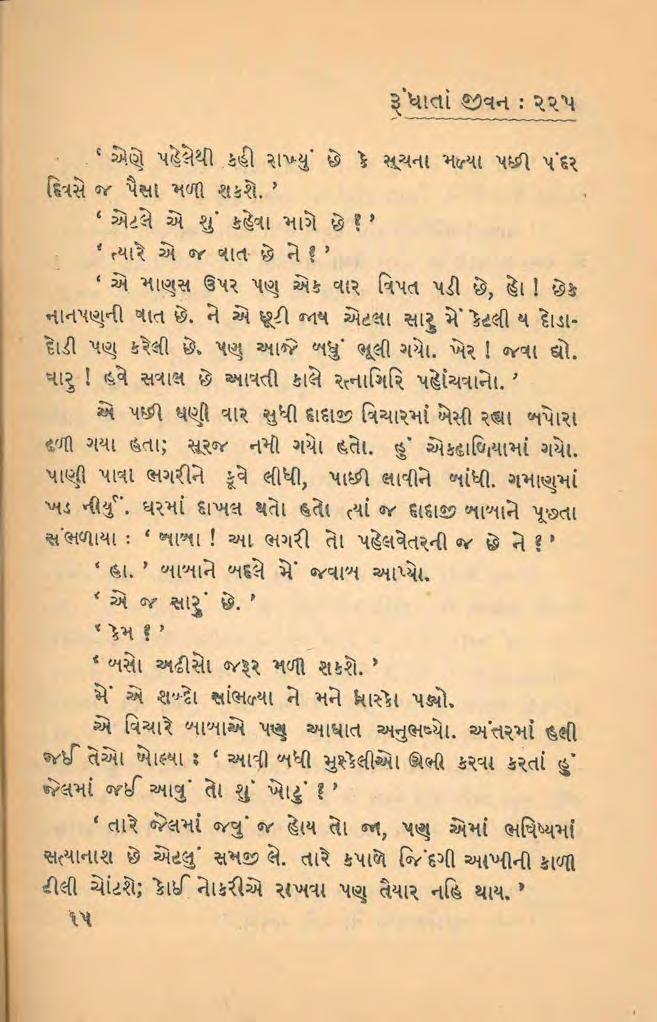 રૂંધાતાં જીવન : ૨૨૫
‘ એણે પહેલેથી કહી રાખ્યું છે કે સૂચના મળ્યા પછી પંદર
દિવસે જ પૈસા મળી શકશે. ’
‘ એટલે એ શું કહેવા માગે છે ? ’
‘ ત્યારે એ જ વાત છે ને ? ’
‘ એ માણસ ઉપર પણ એક વાર વિપત પડી છે, હો ! છેક
નાનપણની વાત છે. ને એ છૂટી જાય એટલા સારુ મેં કેટલી ય દોડા-
દોડી પણ કરેલી છે. પણ આજે બધું ભૂલી ગયો. ખેર ! જવા દ્યો.
ધારુ ! હવે સવાલ છે આવતી કાલે રત્નાગિરિ પહોંચવાનો. ’
એ પછી ઘણી વાર સુધી દાદાજી વિચારમાં બેસી રહ્યા બપોરા
ઢળી ગયા હતા; સૂરજ નમી ગયો હતો. હું એકઢાળિયામાં ગયો.
પાણી પાવા ભગરીને કૂવે લીધી, પાછી લાવીને બાંધી. ગમાણમાં
ખડ નીર્યું. ઘરમાં દાખલ થતો હતો ત્યાં જ દાદાજી બાબાને પૂછતા
સંભળાયા : ‘ બાબા ! આ ભગરી તો પહેલવેતરની જ છે ને ? ’
‘ હા. ’ બાબાને બદલે મેં જવાબ આપ્યો.
‘ એ જ સારું છે. ’
‘ કેમ ? ’
‘ બસો અઢીસો જરૂર મળી શકશે. ’
મેં એ શબ્દો સાંભળ્યા ને મને ધ્રાસ્કો પડ્યો.
એ વિચારે બાબાએ પણ આઘાત અનુભવ્યો. અંતરમાં હલી
જઈ તેઓ બોલ્યા : ‘ આવી બધી મુશ્કેલીઓ ઊભી કરવા કરતાં હું
જેલમાં જઈ આવું તો શું ખોટું ? ’
‘ તારે જેલમાં જવું જ હોય તો જા, પણ એમાં ભવિષ્યમાં
સત્યાનાશ છે એટલું સમજી લે. તારે કપાળે જિંદગી આખીની કાળી
ટીલી ચોંટશે; કોઈ નોકરીએ રાખવા પણ તૈયાર નહિ થાય. ’
૧૫